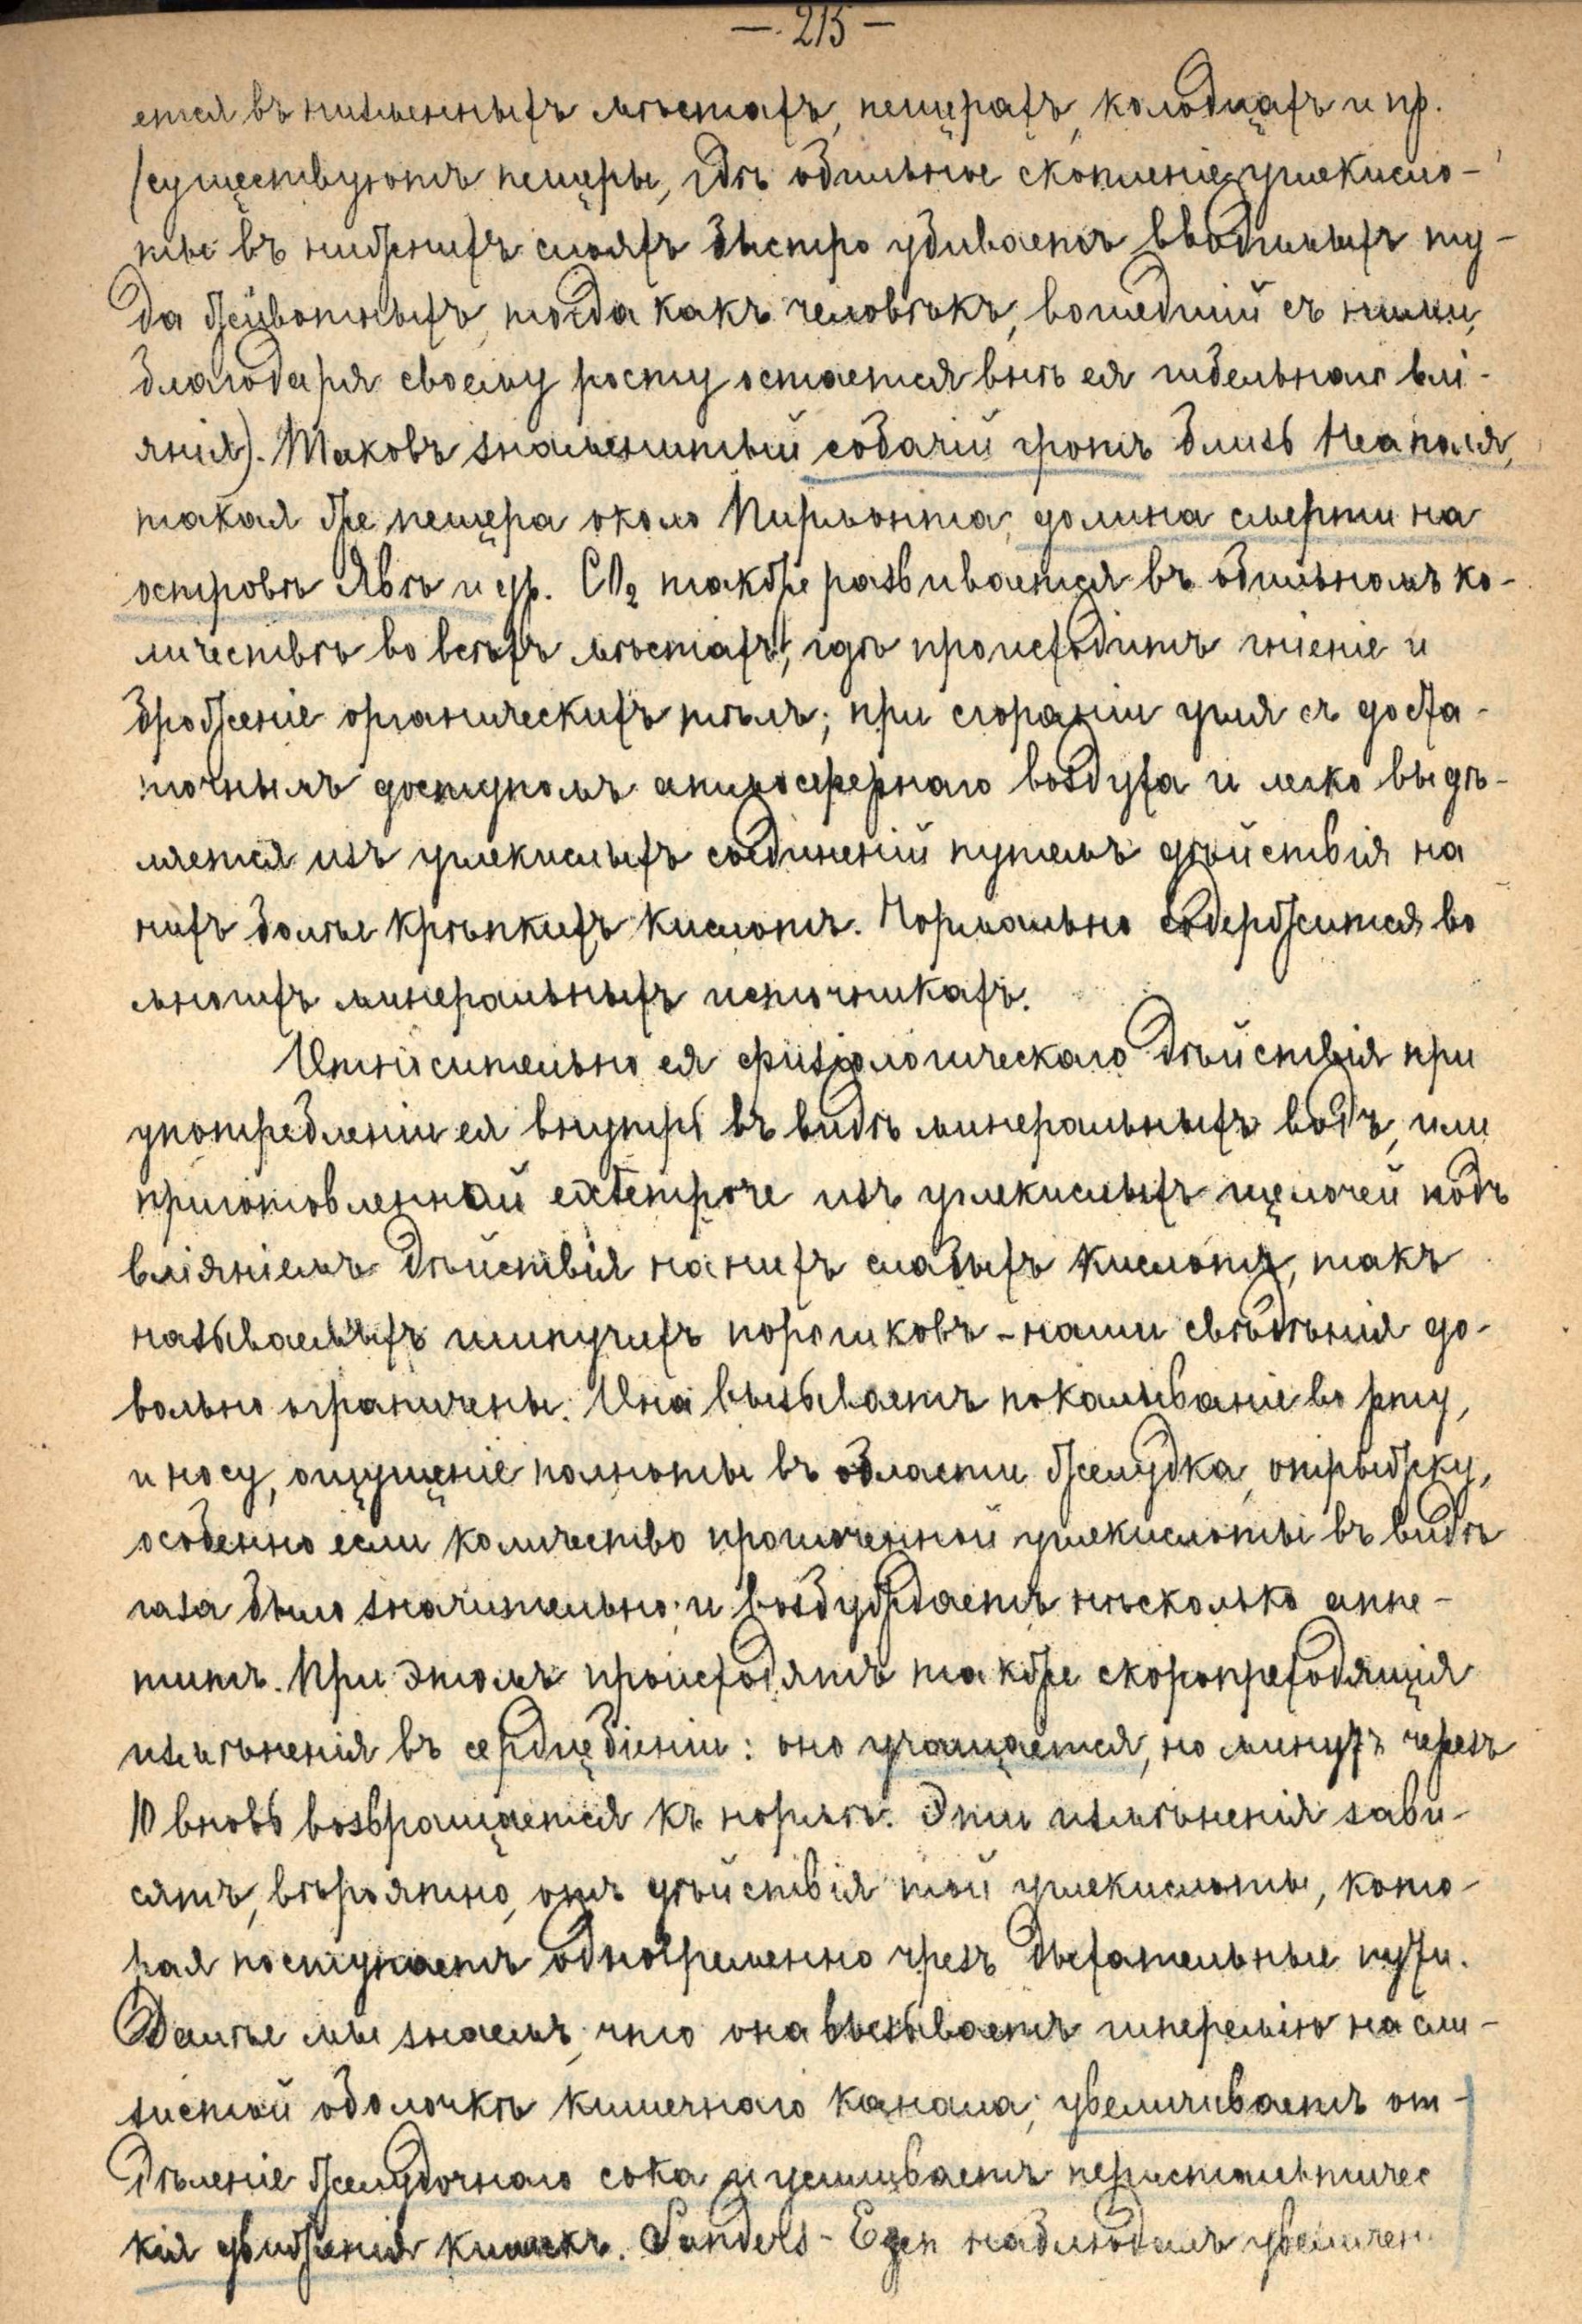 — 215 —
ется въ низменныхъ мѣстахъ, пещерахъ, колодцахъ и пр.
(существуютъ пещеры, гдѣ обильное скопленіе углекисло-
ты въ нижнихъ слояхъ быстро убиваетъ вводимыхъ ту-
да животныхъ, тогда какъ человѣкъ, вошедшій съ ними,
благодаря своему росту остается внѣ ея гибельнаго влі-
янія). Таковъ знаменитый собачій гротъ близь Неаполя,
такая же пещера около Пирмонта, долина смерти на
островѣ Явѣ и др. CO2 также развивается въ обильномъ ко-
личествѣ во всѣхъ мѣстахъ, гдѣ происходитъ гніеніе и
броженіе органическихъ тѣлъ; при сгораніи угля съ доста-
точнымъ доступомъ атмосфернаго воздуха и легко выдѣ-
ляется изъ углекислыхъ соединеній путемъ дѣйствія на
нихъ болѣе крѣпкихъ кислотъ. Нормально содержится во
многихъ минеральныхъ источникахъ.
Относительно ея физіологическаго дѣйствія при
употребленіи ея внутрь въ видѣ минеральныхъ водъ, или
приготовленной ex tempore изъ углекислыхъ щелочей подъ
вліяніемъ дѣйствія на нихъ слабыхъ кислотъ, такъ
называемыхъ шипучихъ порошковъ - наши свѣдѣнія до-
вольно ограничены. Она вызываетъ покалываніе во рту,
и носу, ощущеніе полноты въ области желудка, отрыжку,
особенно если количество проглоченной углекислоты въ видѣ
газа было значительно; и возбуждаетъ нѣсколько аппе-
титъ. При этомъ происходятъ также скоропреходящія
измѣненія въ сердцебіеніи: оно учащается, но минутъ черезъ
10 вновь возвращается къ нормѣ. Эти измѣненія зави-
сятъ, вѣроятно, отъ дѣйствія той углекислоты, кото-
рая поступаетъ одновременно чрезъ дыхательные пути.
Далѣе мы знаемъ, что она вызываетъ гиперемію на сли-
зистой оболочкѣ кишечнаго канала; увеличиваетъ от-
дѣленіе желудочнаго сока и усиливаетъ перистальтичес
кія движенія кишекъ. Sanders - Ezen наблюдалъ увеличен